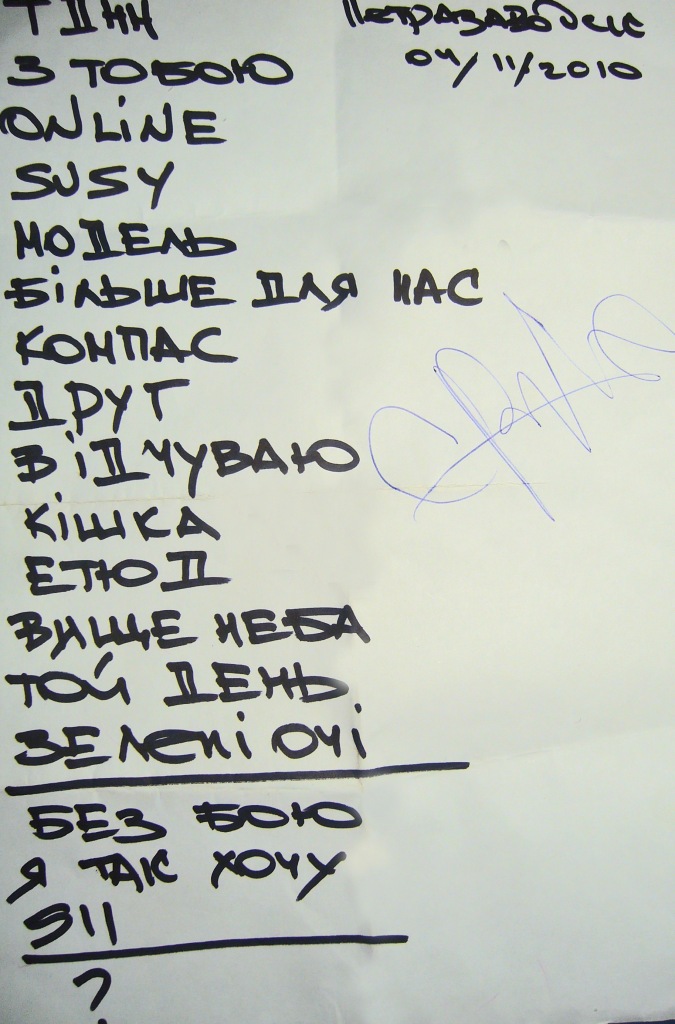 ТДНН
Петразаводск
04/11/2010
З ТОБОЮ
ONLiNE
SUSY
МОДЕЛЬ
БіЛЬШЕ ДЛЯ НАС
КОМПАС
ДРУГ
ВіДЧУВАЮ
КіШКА
ЕТЮД
ВИЩЕ НЕБА
ТОЙ ДЕНЬ
ЗЕЛЕНі ОЧі
БЕЗ БОЮ
Я ТАК ХОЧУ
911
?